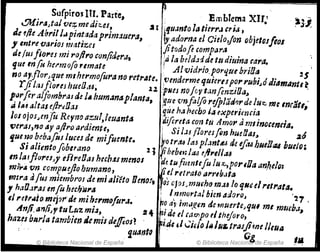 Sufpiros III. Parte,
¡Mira, tal vez me dizes,
de este Abril la pintada primauera,
y entre varios matizes
de sus flores mi rostro considera,
que en su hermoso remate
no ay flor, que mi hermosura no retrate.
Y si las flores huellas, 22
por ser alfombras de la humana planta,
à las altas estrellas
los ojos, en su Reyno azul, leuanta
veras, no ay astro ardiente,
que no beba sus luces de mi fuente.
Si aliento soberano 23
en las flores, y estrellas hechas menos
mira vn compuesto humano,
verà à sus miembros de mi alièto llenos,
y hallaras en su hechura
el retrato mejor de mi hermosura.
Ansi, ansi, y tu Luz mia, 24
hazes burla tambien de mis desseos?
quanto
Emblema XII;
quanto la tierra cria,
y adorna el Cielo, son objetos feos
si todo se compara
à la beldad de tu diuina cara.
Al vidrio, por que brilla 25
venderme quieres por rubì, ò diamante?
pues no soy tan senzilla,
que vn falso resplãdor de luz me encãte,
que ha hecho la experiencia
discreta con tu Amor à mi inocencia.
Si las flores son huellas, 26
yo tras las plantas de essas huellas buelo:
si beben las estrellas
de tu fuente su luz, por ella anhelo
si el retrato arrebata
los ojos, mucho mas lo que el retrata.
Inmortal bien adoro, 27
no ay imagen de muerte, que me mueba,
ni de el campo el thesoro,
ni de el Cielo la luz tras si me lleua
Gg tu
© Biblioteca Nacional de España
© Biblioteca Nacional de España